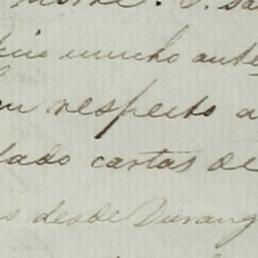 mucho ante
respeito a
lado cartas de
s desde Durang